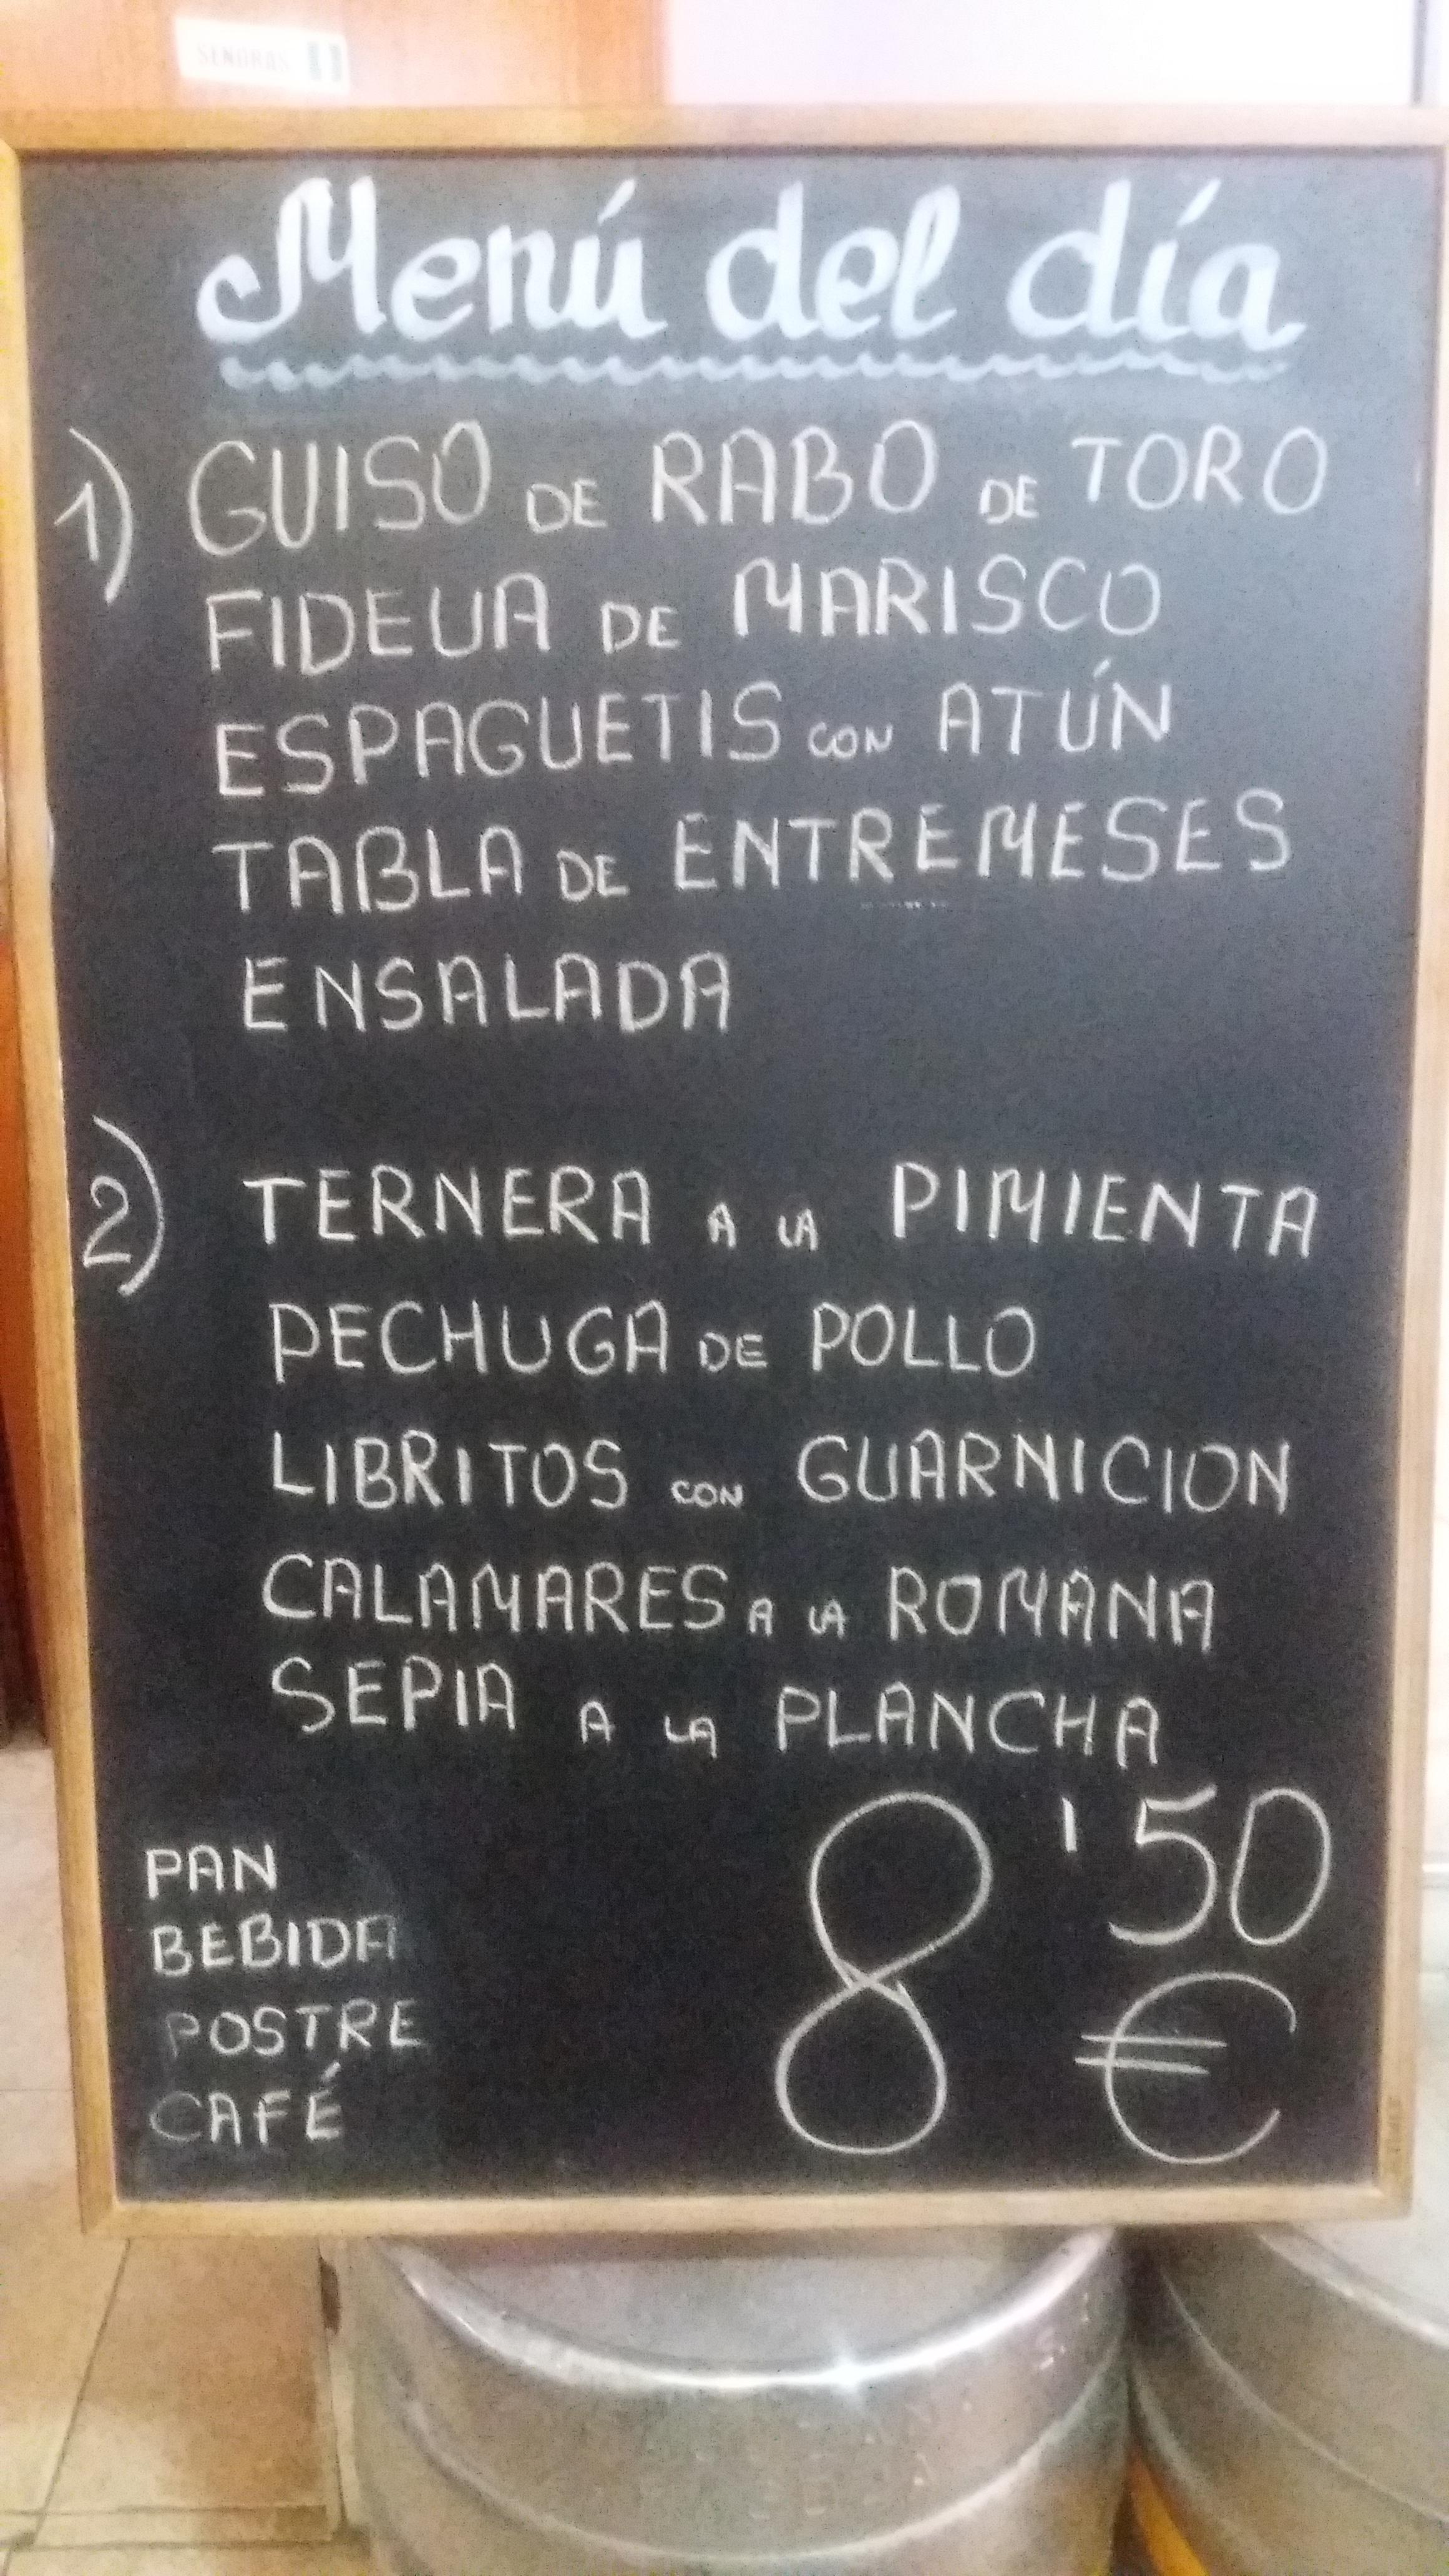 SEÑORAS
Menú del día
1) GUISO DE RABO DE TORO
FIDEUA DE MARISCO
ESPAGUETIS CON ATÚN
TABLA DE ENTREMESES
ENSALADA
2) TERNERA A LA PIMIENTA
PECHUGA DE POLLO
LIBRITOS CON GUARNICION
CALAMARES A LA ROMANA
SEPIA A LA PLANCHA
PAN
BEBIDA
POSTRE
CAFÉ
8'50
€